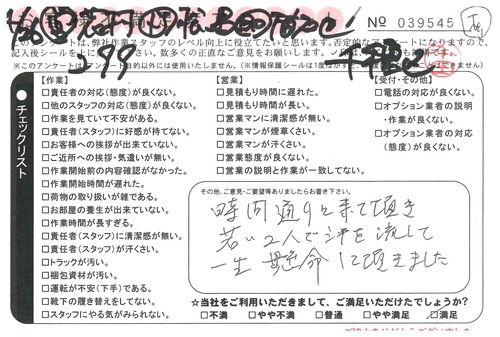 No 039545
このアンケートは、弊社作業スタッフのレベル向上に役立てたいと思います。否定的なアンケートになりますので、
※このアンケートは
【作業】
□責任者の対応(態度)が良くない。
□他のスタッフの対応(態度)が良くない。
□作業を見ていて不安がある。
□責任者(スタッフ)に好感が持てない。
□お客様への挨拶が出来ていない。
□ご近所への挨拶・気遣いが無い。
□作業開始前の内容確認がなかった。
□作業開始時間が遅れた。
□荷物の取り扱いが雑である。
□お部屋の養生が出来ていない。
□作業時間が長すぎる。
□責任者(スタッフ)に清潔感が無い。
□責任者(スタッフ)が汗くさい。
□トラックが汚い。
□梱包資材が汚い。
□運転が不安(下手)である。
□靴下の履き替えをしてない。
□スタッフにやる気がみられない。
チェックリスト
【営業】
□見積もり時間に遅れた。
□見積もり時間が長い。
□営業マンに清潔感が無い。
□営業マンが煙草くさい。
□営業マンが汗くさい。
□営業態度が良くない。
□営業の説明と作業が一致してない。
【受付・その他】
□電話の対応が良くない。
□オプション業者の説明
・作業が良くない。
□オプション業者の対応
(態度)が良くない。
その他、ご意見・ご要望等ありましたらお書き下さい。
時間通りに来て頂き
若い2人で汗を流して
一生懸命に頂きました
☆当社をご利用いただきまして、ご満足いただけたでしょうか?
□不満 □やや不満 □普通 □やや満足 □満足